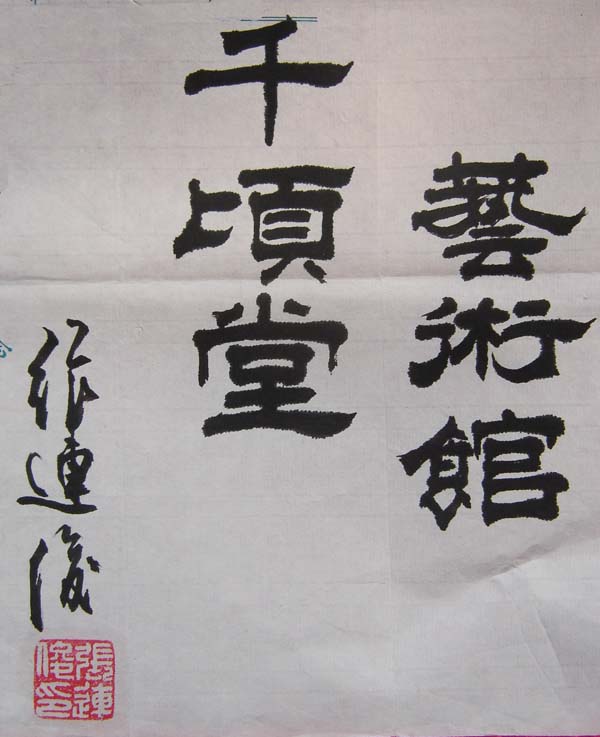 藝術館
千頃堂
張連俊
張連
俊印